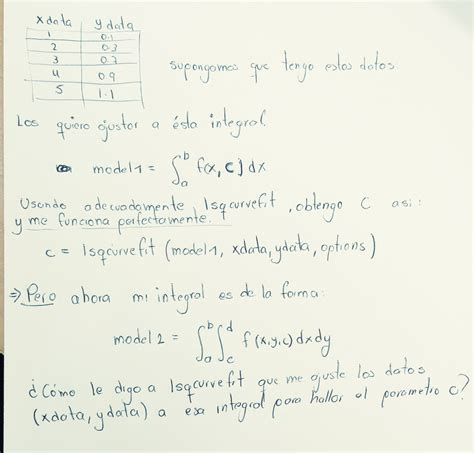 xdata ydata
1 0.1
2 0.3
3 0.7
4 0.9
5 1.1
supongamos que tengo estos datos.
Los quiero ajustar a ésta integral
model1 = ∫_a^b f(x, c) dx
Usando adecuadamente lsqcurvefit, obtengo C asi:
y me funciona perfectamente.
c = lsqcurvefit (model1, xdata, ydata, options)
⇒ Pero ahora mi integral es de la forma:
model2 = ∫_a^b ∫_c^d f(x,y,c) dx dy
¿Cómo le digo a lsqcurvefit que me ajuste los datos
(xdata, ydata) a esa integral para hallar el parametro c?